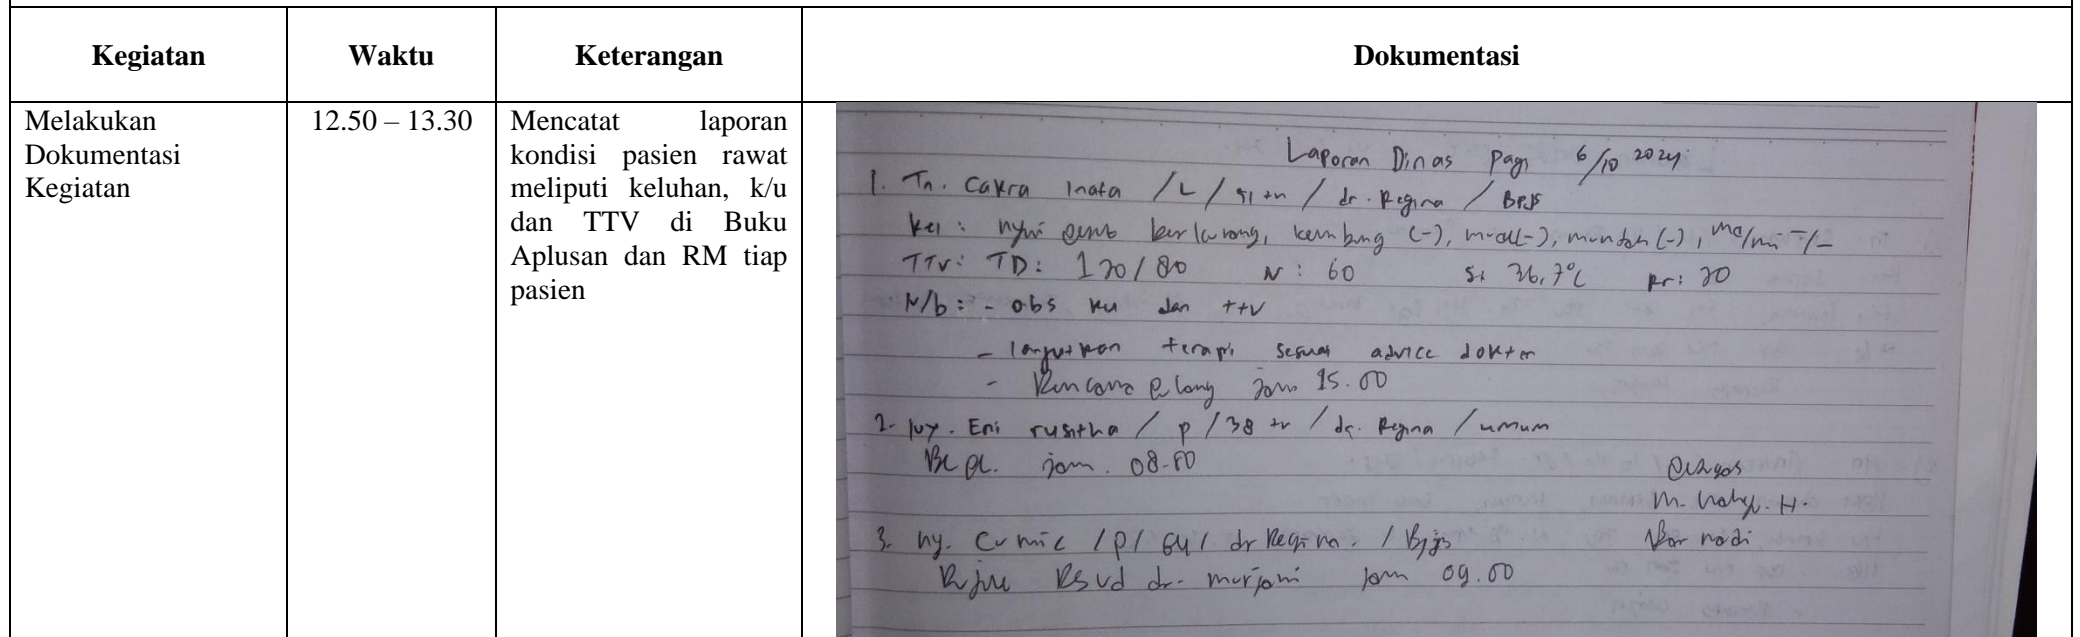 Kegiatan
Waktu
Keterangan
Dokumentasi
Melakukan
Dokumentasi
Kegiatan
12.50 – 13.30
Mencatat laporan
kondisi pasien rawat
meliputi keluhan, k/u
dan TTV di Buku
Aplusan dan RM tiap
pasien
Laporan Dinas Pagi 6/10 2024
1. Tn. Cakra Inata / L / 51 tn / dr. Regina / BPJS
Kel : nyeri berkurang, kembung (-), mual(-), muntah (-), ma/mi +/-
TTV: TD: 120/80 N : 60 S: 36,7°C Rr: 20
N/b : - obs ku dan ttv
- lanjutkan terapi sesuai advice dokter
- Rencana pulang jam 15.00
2. Ny. Eni rusitha / p / 38 tn / dr. Regina / umum
jam. 08.50
Petugas
M. H.
3. ny. / p / 64 / dr Regina. / Bpjs
Rujuk RSud dr. murjani jam 09.00